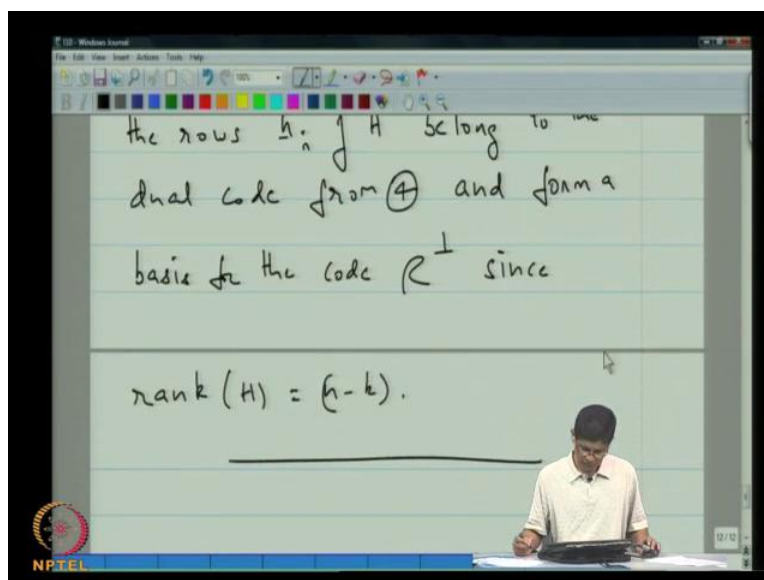 L10 - Windows Journal
File Edit View Insert Actions Tools Help
the rows h_i of H belong to the
dual code from ④ and form a
basis for the code C^⊥ since
rank (H) = (n-k).
12/12
NPTEL